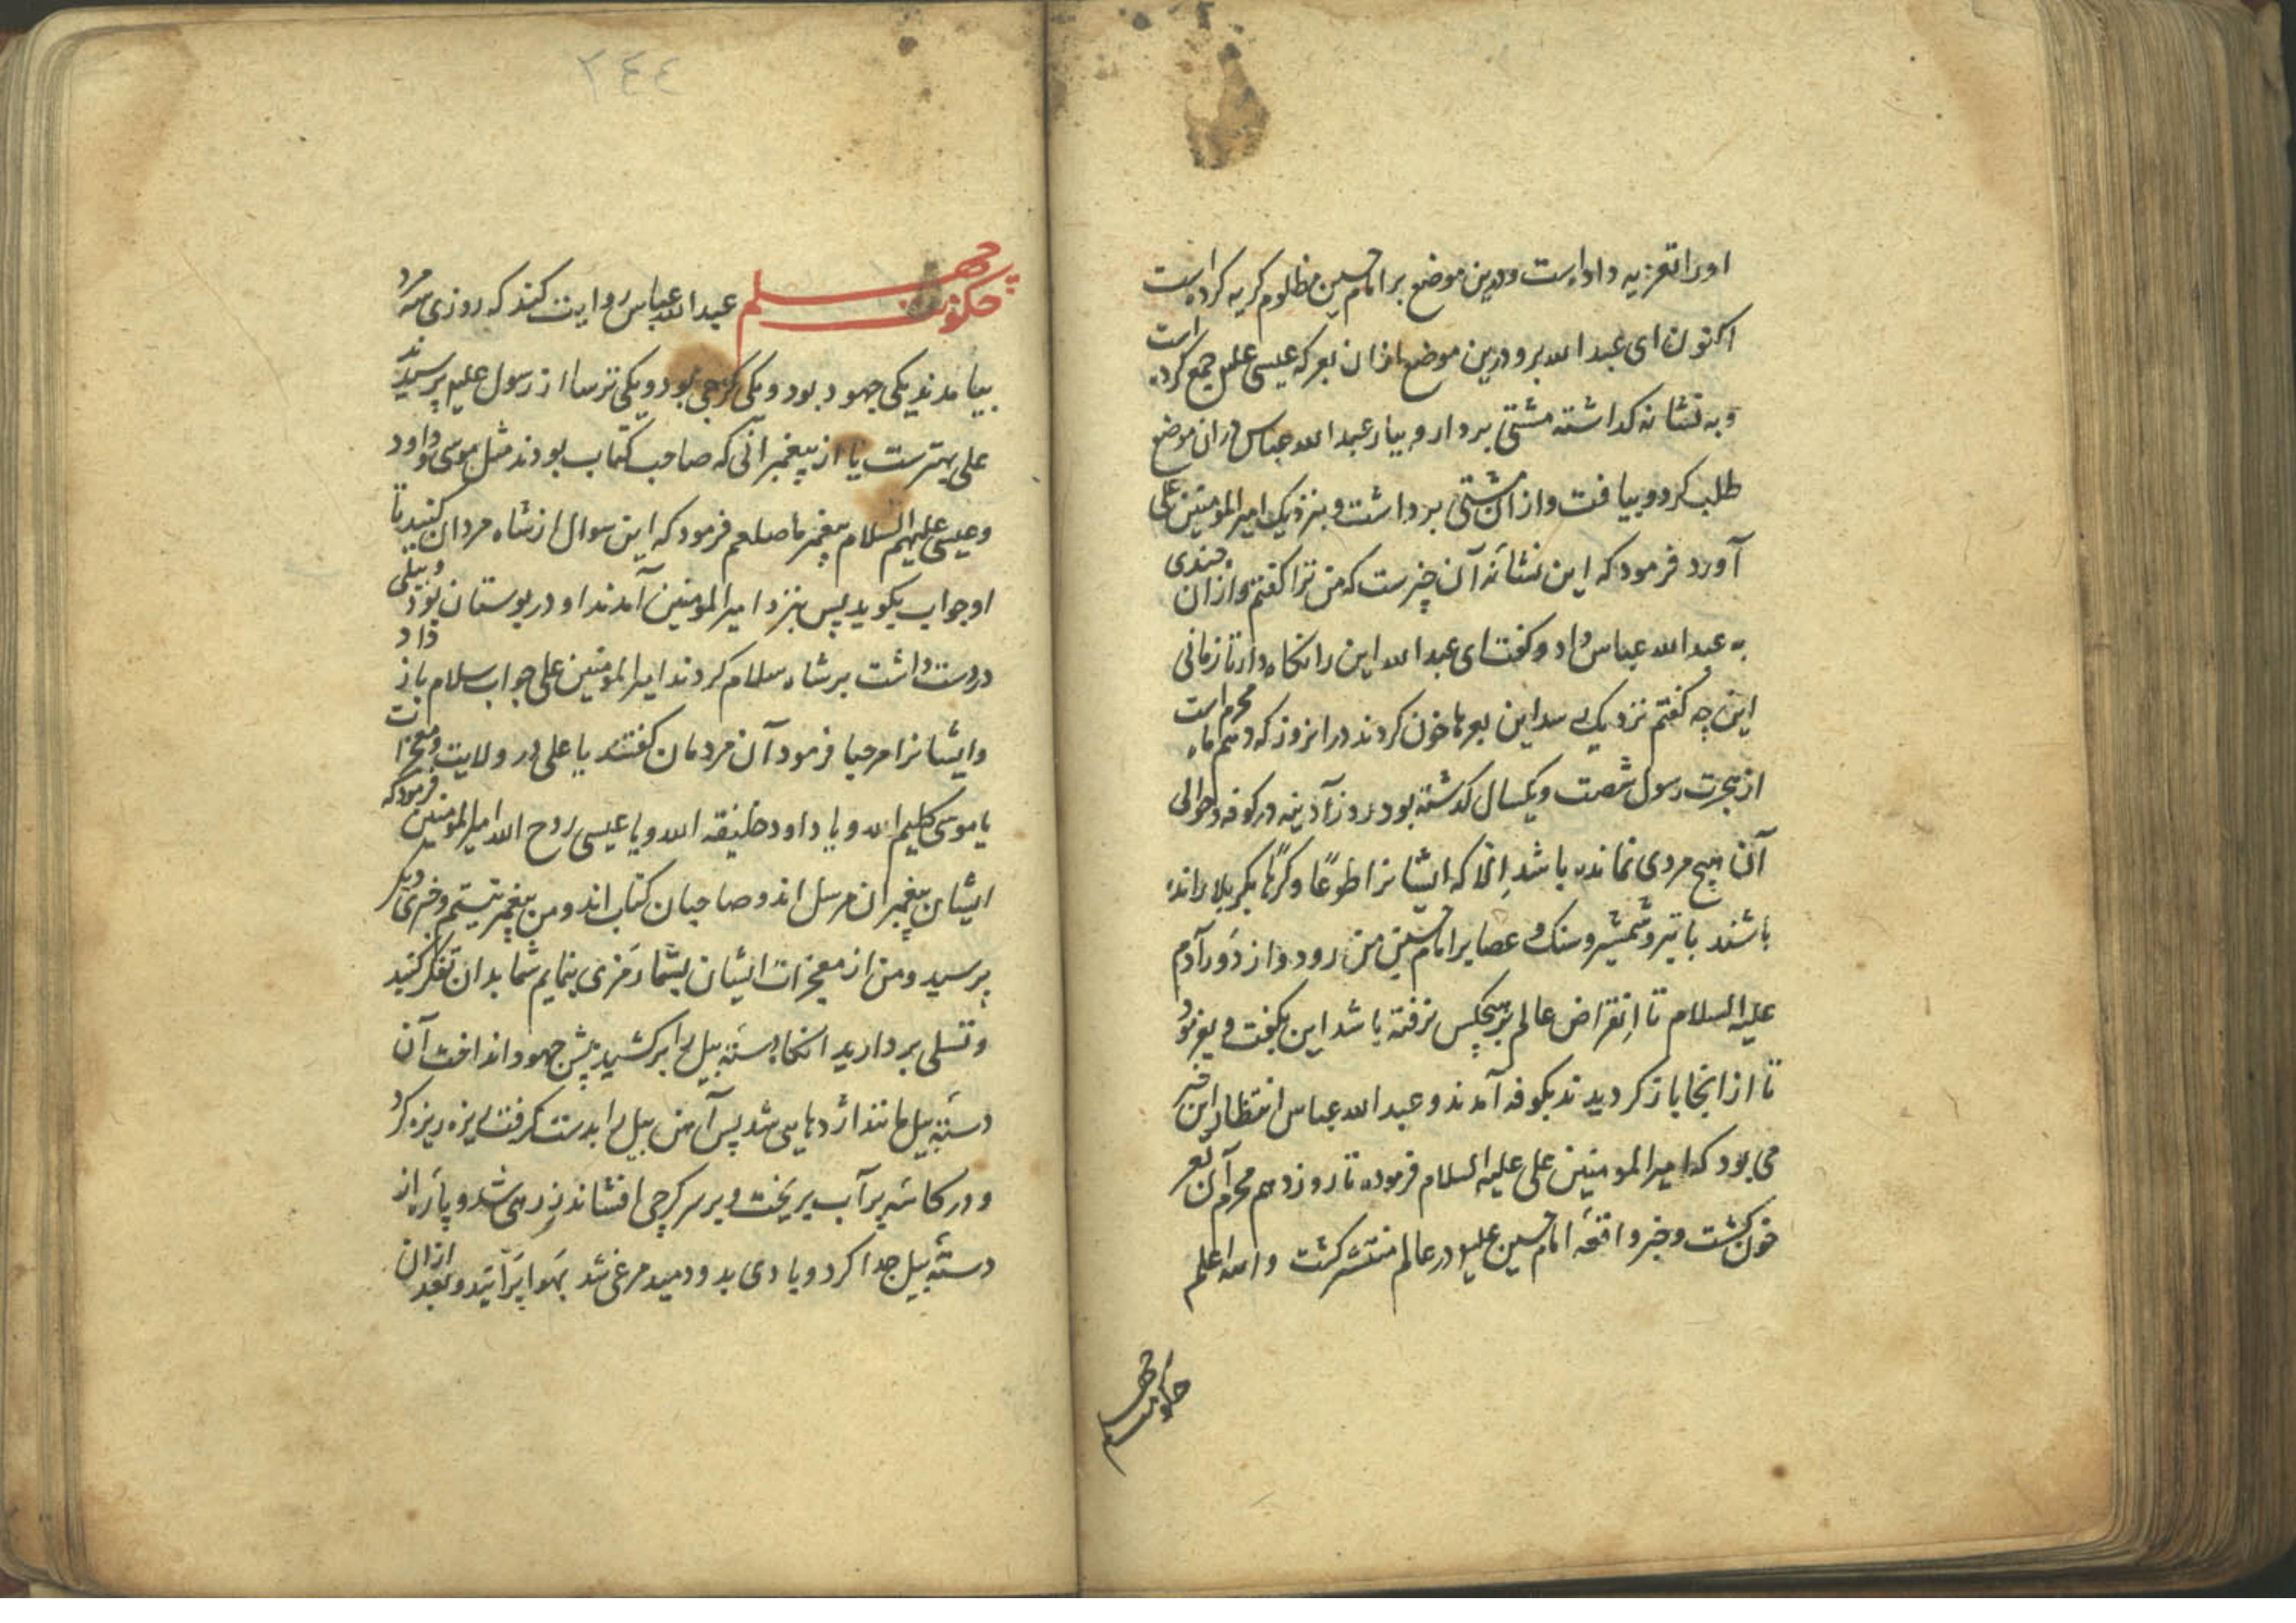 اورا تعزیه داده است ودرین موضع بر امام حسین مظلوم کریه کرده است
اکنون ای عبد الله برو ودرین موضع ازان بعر که عیسی علیه جمع کرده است
وبه نشانه کذاشته مشتی بردار و بیار عبد الله عباس در ان موضع
طلب کرد و بیافت و از ان مشتی برداشت و بنزدیک امیر المومنین علی
آورد فرمود که این نشانه آن چیزست که من ترا کفتم و ازان چندی
به عبد الله عباس داد و کفت ای عبد الله این را نکاه دار تا زمانی
این چه کفتم نزدیک رسد این بعرها خون کردند در انروز که دهم ماه محرم است
از هجرت رسول شصت و یکسال کذشته بود روز آدینه در کوفه و حوالی
آن هیچ مردی نمانده باشد الا که ایشانرا طوعًا و کرهًا بکربلا رانده
باشند با تیر و شمشیر و سنک و عصا بر امام حسین من رود و از دَور آدم
علیه السلام تا اِنقراض عالم بر هیچکس نرفته باشد این بکفت و بفرمود
تا از انجا باز کردیدند بکوفه آمدند و عبد الله عباس انتظار این خبر
می بود که امیر المومنین علی علیه السلام فرموده تا روز دهم محرم آن بعر
خون کشت و خبر واقعه امام حسین علیه در عالم منتشر کشت والله اعلم
حکومت چهلم
٢٤٤
حکومت چهلم عبد الله عباس روایت کند که روزی سه مرد
بیامدند یکی جهود بود و یکی کرجی بود و یکی ترسا از رسول علیه پرسیدند
علی بهترست یا از پیغمبرانی که صاحب کتاب بودند مثل موسی و داود
و عیسی علیهم السلام پیغمبر ما صلعم فرمود که این سوال از شاه مردان کنید تا
او جواب بکوید پس بنزد امیر المومنین آمدند او در بوستان بود و بیلی
در دست داشت بر شاه سلام کردند امیر المومنین علی جواب سلام باز داد
و ایشانرا مرحبا فرمود آن مردمان کفتند یا علی در ولایت و معجزات
یا موسی کلیم الله و یا داود خلیفه الله و یا عیسی روح الله امیر المومنین فرمود که
ایشان پیغمبران مرسل اند و صاحبان کتاب اند و من پیغمبر نیستم و خبری دیکر
پرسید و من از معجزات ایشان بشما رمزی بنمایم شما بدان تفکر کنید
و تسلی بردارید انکاه دسته بیل را برکشید پیش جهود انداخت آن
دسته بیل مانند اژدهایی شد پس آهن بیل را بدست کرفت ریزه ریزه کرد
و در کاسه پر آب بریخت و بر سر کرجی افشاند زرهی شد و پاره از
دسته بیل جدا کرد و بادی بدو دمید مرغی شد بهوا پرانید و بعد ازان